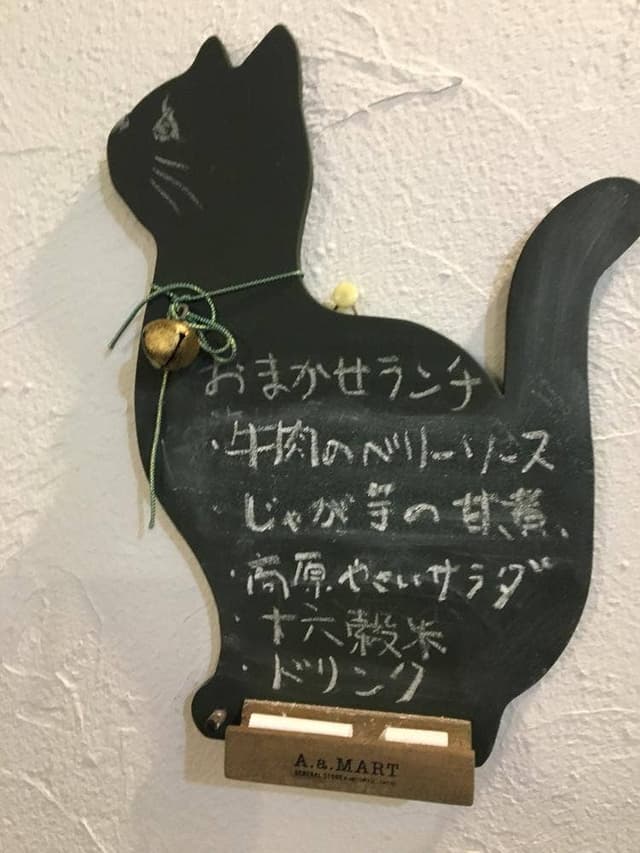 おまかせランチ
・牛肉のベリーソース
じゃが芋の甘煮、
・高原やさいサラダ
・十六穀米
・ドリンク
A.a.MART
GENERAL STORE